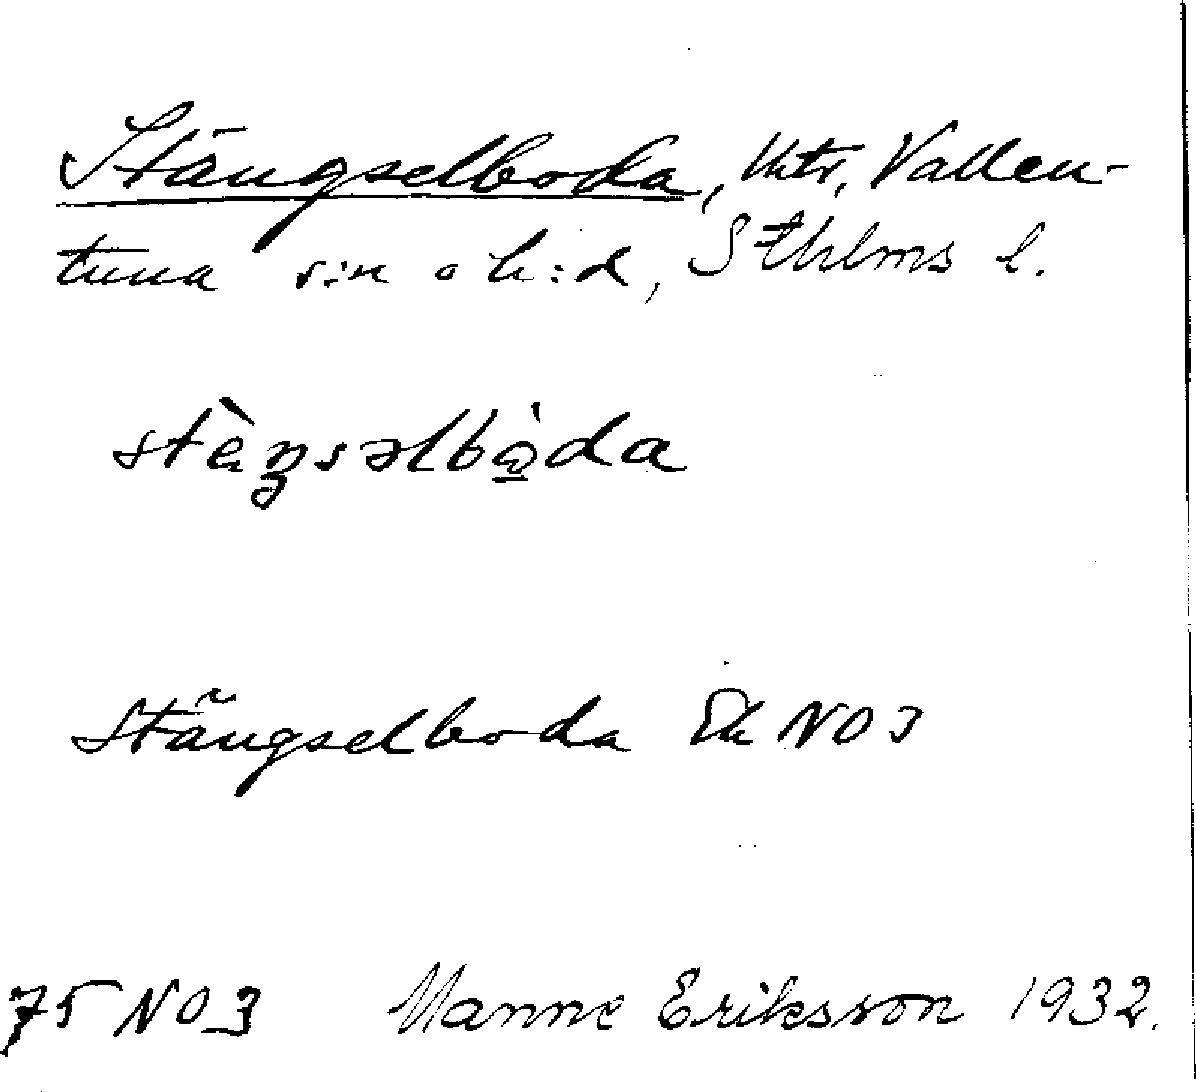 Stängselboda, Uktr, Vallen-
tuna s:n o h:d, Sthlms l.
stä̀ŋsəlbò̱da
Stängselboda Ek NO3
75 NO3 Manne Eriksson 1932.